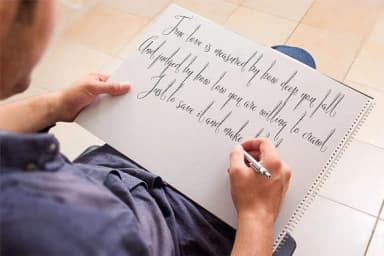 True love is measured by how deep you fall
And judged by how low you are willing to crawl
Just to save it and make